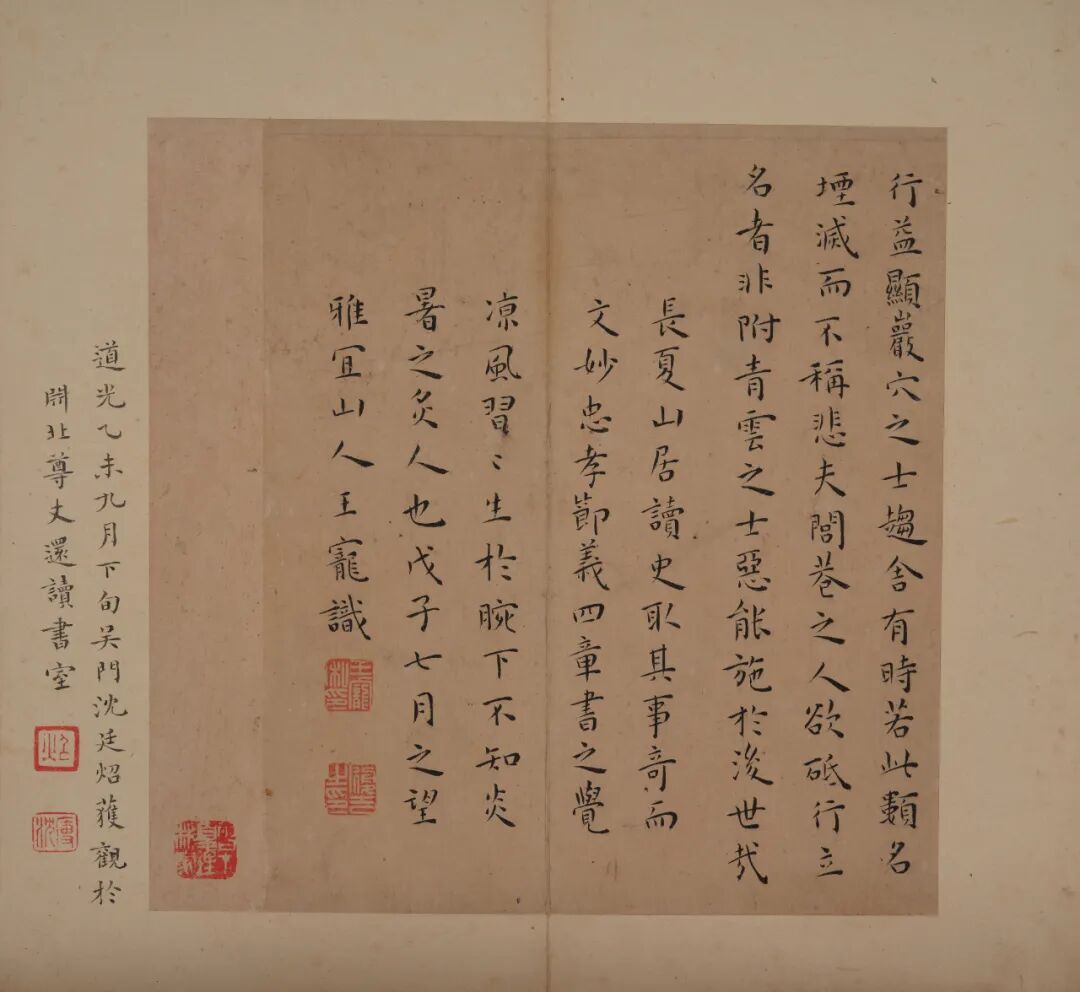 行益顯巖穴之士趨舍有時若此類名
堙滅而不稱悲夫閭巷之人欲砥行立
名者非附青雲之士惡能施於後世哉
長夏山居讀史取其事奇而
文妙忠孝節義四章書之覺
凉風習〻生於腕下不知炎
暑之炙人也戊子七月之望
雅宜山人王寵識
道光乙未九月下旬吴門沈廷炤獲觀於
關北尊丈還讀書室